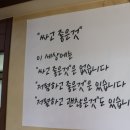 "싸고 좋은것"
이 세상에는
"싸고 좋은것"은 없습니다
"저렴하고 좋은것"은 있습니다
"저렴하고 괜찮은것"도 있습니다